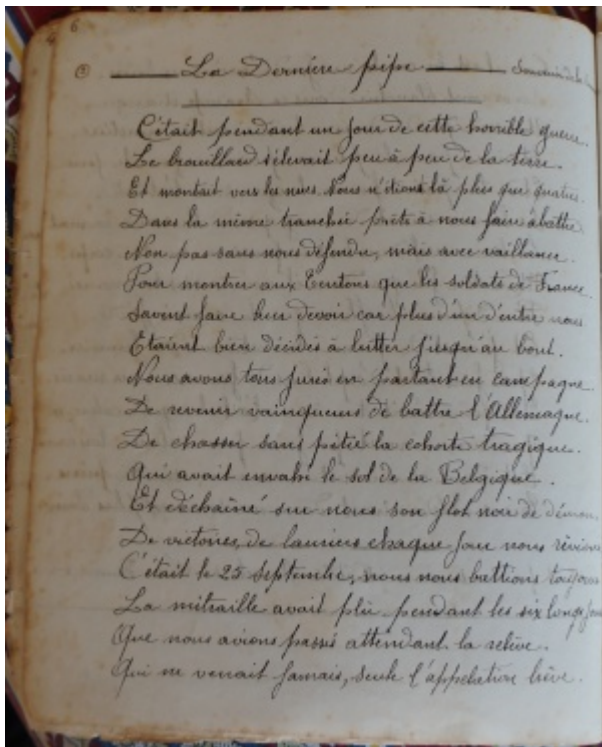 6
① La Dernière pipe Souvenir de la
C'était pendant un jour de cette horrible guerre.
Le brouillard s'élevait peu à peu de la terre.
Et montait vers les nues. Nous n'étions là plus que quatre.
Dans la même tranchée prêts à nous faire abattre
Non pas sans nous défendre, mais avec vaillance.
Pour montrer aux Teutons que les soldats de France.
Savent faire leur devoir car plus d'un d'entre nous
Etaient bien décidés à lutter jusqu'au bout.
Nous avons tous jurés en partant en campagne.
De revenir vainqueurs de battre l'Allemagne.
De chasser sans pitié la cohorte tragique.
Qui avait envahi le sol de la Belgique.
Et déchaîné sur nous son flot noir de démons
De victoires, de lauriers chaque jour nous rêvions
C'était le 25 septembre, nous nous battions toujours
La mitraille avait plù pendant les six longs jours
Que nous avions passés attendant la relève.
Qui ne venait jamais, seule l'appelation brève.